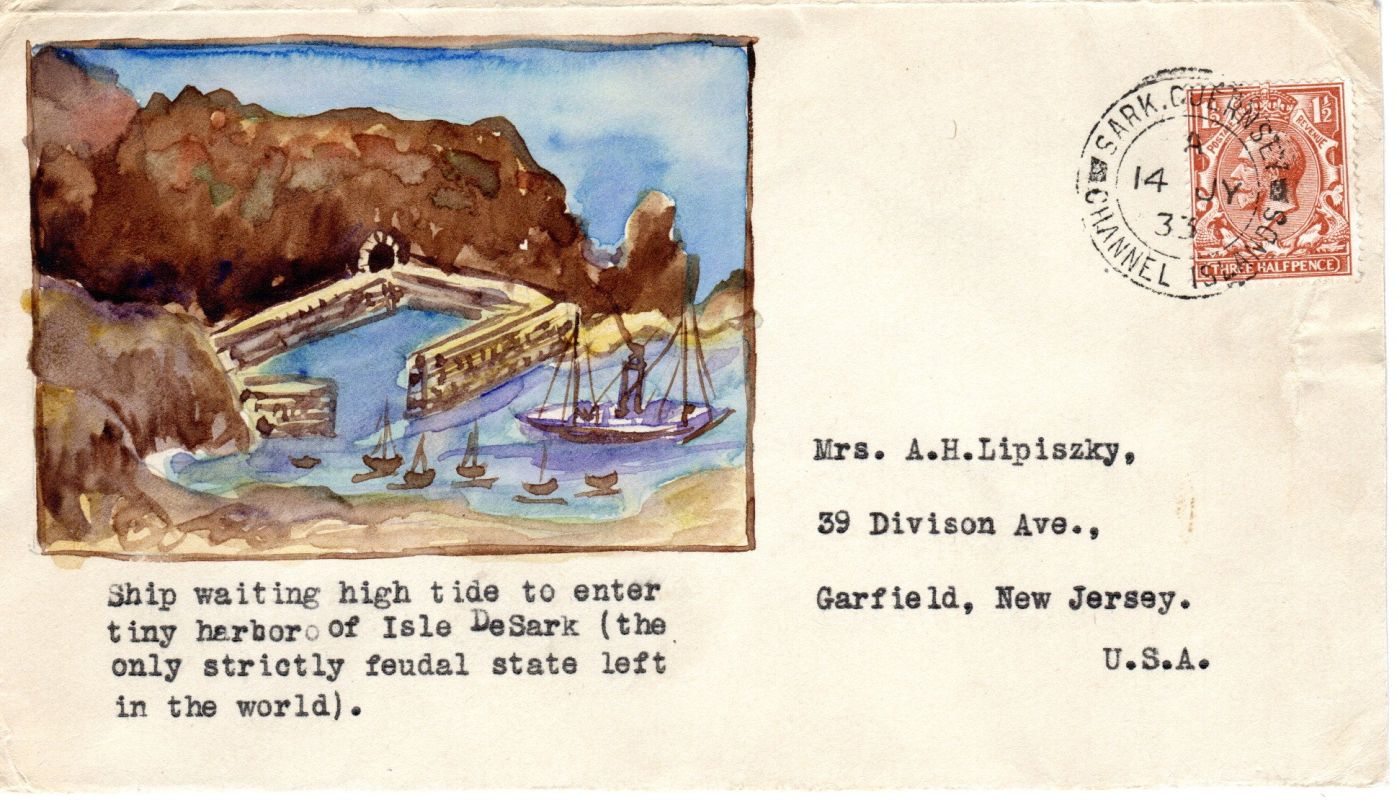 SARK. GUERNSEY
A
14 JY
33
CHANNEL ISLANDS
POSTAGE REVENUE
1½
THREE HALFPENCE
Mrs. A.H.Lipiszky,
39 Divison Ave.,
Garfield, New Jersey.
U.S.A.
Ship waiting high tide to enter
tiny harbor of Isle DeSark (the
only strictly feudal state left
in the world).